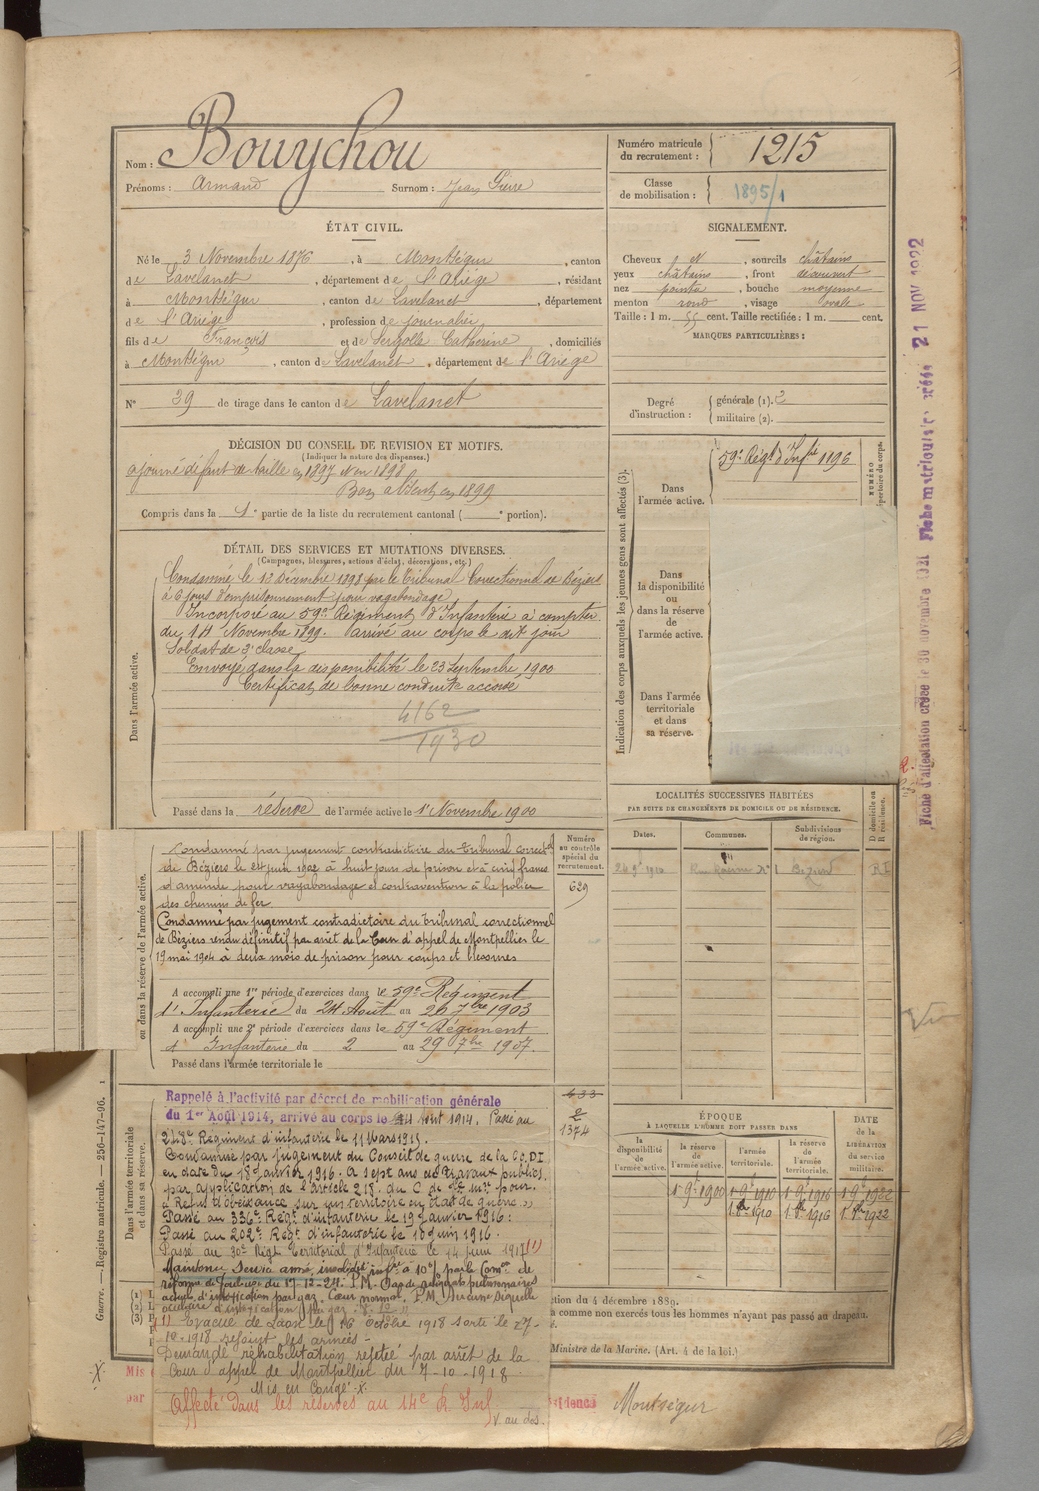 Nom : Bouychou
Prénoms : Armand Surnom : Jean Pierre
Numéro matricule du recrutement : 1215
Classe de mobilisation : 1895/1
ÉTAT CIVIL.
Né le 3 Novembre 1876, à Montségur, canton
de Lavelanet, département de l'Ariège, résidant
à Montségur, canton de Lavelanet, département
de l'Ariège, profession de journalier
fils de François et de Sergolle Catherine, domiciliés
à Montségur, canton de Lavelanet, département de l'Ariège
N° 39 de tirage dans le canton de Lavelanet
SIGNALEMENT.
Cheveux N, sourcils châtains
yeux châtains, front découvert
nez pointu, bouche moyenne
menton rond, visage ovale
Taille : 1 m. 55 cent. Taille rectifiée : 1 m. cent.
MARQUES PARTICULIÈRES :
Degré d'instruction : générale (1). 3
militaire (2).
DÉCISION DU CONSEIL DE REVISION ET MOTIFS.
(Indiquer la nature des dispenses.)
ajourné défaut de taille en 1897 et en 1898
Bon absent en 1899
Compris dans la 1e partie de la liste du recrutement cantonal ( e portion).
DÉTAIL DES SERVICES ET MUTATIONS DIVERSES.
(Campagnes, blessures, actions d'éclat, décorations, etc.)
Dans l'armée active.
Condamné le 12 Décembre 1898 par le Tribunal Correctionnel de Béziers
à 6 jours d'emprisonnement pour vagabondage
Incorporé au 59e Régiment d'Infanterie à compter
du 14 Novembre 1899. Arrivé au corps le dit jour
Soldat de 2e classe
Envoyé dans la disponibilité le 23 Septembre 1900
Certificat de bonne conduite accordé
4162
1930
Passé dans la réserve de l'armée active le 1er Novembre 1900
Indication des corps auxquels les jeunes gens sont affectés (3).
Dans l'armée active.
59e Régt d'Infie 1196
NUMÉRO
répertoire du corps.
Dans la disponibilité ou dans la réserve de l'armée active.
Dans l'armée territoriale et dans sa réserve.
Fiche d'affectation créée le 30 novembre 1921 Fiche matriculaire créée 21 NOV 1922
LOCALITÉS SUCCESSIVES HABITÉES
PAR SUITE DE CHANGEMENTS DE DOMICILE OU DE RÉSIDENCE.
Dates. Communes. Subdivisions de région. D domicile ou R résidence.
ou dans la réserve de l'armée active.
Condamné par jugement contradictoire du Tribunal correctel
de Béziers le 21 juin 1902 à huit jours de prison et à cinq francs
d'amende pour vagabondage et contravention à la police
des chemins de fer
Condamné par jugement contradictoire du Tribunal correctionnel
de Béziers rendu définitif par arrêt de la Cour d'appel de Montpellier le
19 mai 1904 à deux mois de prison pour coups et blessures
Numéro au contrôle spécial du recrutement.
629
A accompli une 1re période d'exercices dans le 59e Régiment
d'Infanterie du 24 Août au 20 7bre 1903
A accompli une 2e période d'exercices dans le 59e Régiment
d'Infanterie du 2 au 29 7bre 1907.
Passé dans l'armée territoriale le
Dans l'armée territoriale et dans sa réserve.
Rappelé à l'activité par décret de mobilisation générale
du 1er Août 1914, arrivé au corps le 14 Août 1914. Passé au
248e Régiment d'infanterie le 11 Mars 1915.
Condamné par jugement du Conseil de guerre de la 60 DI
en date du 18 Janvier 1916. A sept ans de travaux publics,
par application de l'article 218. du C. de Jce mre pour.
"Refus d'obéissance sur un territoire en état de guerre".
Passé au 336e Régt d'infanterie le 19 Janvier 1916:
Passé au 202e Régt d'infanterie le 10 juin 1916.
Passé au 30e Régt Territorial d'Infanterie le 14 juin 1917 (1)
Maintenu service armé, invalidité infre à 10% par la Comon de
réforme de Toulouse du 17-12-24.
(1) Evacué de Laon le 16 octobre 1918 sorti le 27-
10-1918 rejoint les armées -
Demande réhabilitation rejetée par arrêt de la
Cour d'appel de Montpellier du 7-10-1918
Mis en Congé X.
Affecté dans les réserves au 14e R. Inf
V. au dos.
633
2
1374
ÉPOQUE
À LAQUELLE L'HOMME DOIT PASSER DANS
la disponibilité de l'armée active. la réserve de l'armée active. l'armée territoriale. la réserve de l'armée territoriale.
DATE de la LIBÉRATION du service militaire.
1 9e 1900 1 9e 1910 1 9e 1916 1 9e 1922
1 8bre 1910 1 8bre 1916 1 8bre 1922
ction du 4 décembre 1889.
a comme non exercés tous les hommes n'ayant pas passé au drapeau.
Ministre de la Marine. (Art. 4 de la loi.)
Guerre. — Registre matricule. — 256-147-96.
Mis
par
Montségur